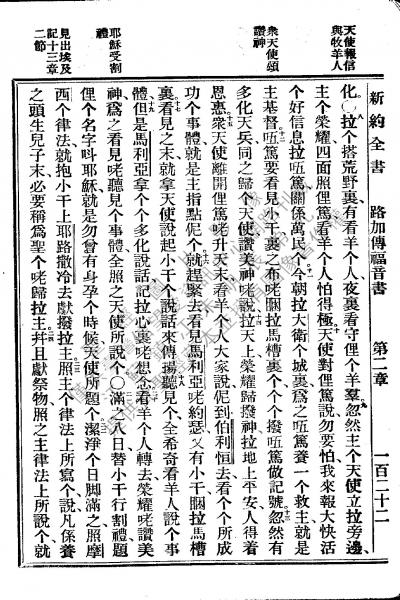 天使報信
與牧羊人
衆天使頌
讚神
耶穌受割
禮
見出埃及
記十三章
二節
新約全書 路加傳福音書 第二章 一百二十二
化○拉个搭荒野裏有看羊个人夜裏看守俚个羊羣忽然主个天使立拉旁邊
主个榮耀四面照俚篤看羊个人怕得極天使對俚篤說勿要怕我來報大快活
个好信息拉㕶篤關係萬民个今朝拉大衛个城裏爲之㕶篤養一个救主就是
主基督㕶篤要看見小干之布咾睏拉馬槽裏个个撥㕶篤做記號忽然有
多化天兵同之歸个天使讚美神咾說拉天上榮耀歸撥神拉地上平安人得着
恩惠衆天使離開俚篤咾升天末看羊个人大家說伲到伯利恒去看个个所成
功个事體就是主指點伲个就趕緊去看見馬利亞咾約瑟又有小干睏拉馬槽
裏看見之末就拿天使說起小干个說話來傳揚聽見个全希奇看羊人說个事
體但是馬利亞拿个个多化說話記拉心裏咾想念看羊个人轉去榮耀咾讚美
神爲之看見咾聽見个事體全照之天使所說个○滿之八日替小干行割禮題
俚个名字呌耶穌就是勿曾有身孕个時候天使所題个潔淨个日脚滿之照摩
西个律法就抱小干上耶路撒冷去獻撥拉主照主个律法上所寫个說凡係養
之頭生兒子末必要稱爲聖咾歸拉主幷且獻祭物照之主律法上所說个就